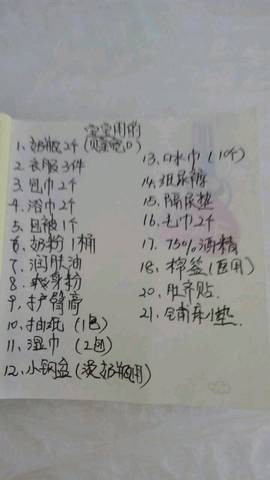 宝宝用的
1、奶瓶2个(贝亲吧D)
2、衣服3件
3、包巾2个
4、浴巾2个
5、包被1个
6、奶粉1桶
7、润肤油
8、爽身粉
9、护臂膏
10、抽纸 (1包)
11、湿巾 (2包)
12、小钢盆(烫奶瓶用)
13、口水巾 (10个)
14、纸尿裤
15、隔尿垫
16、毛巾2个
17、75%酒精
18、棉签 (医用)
20、肚齐贴
21、铺床小垫